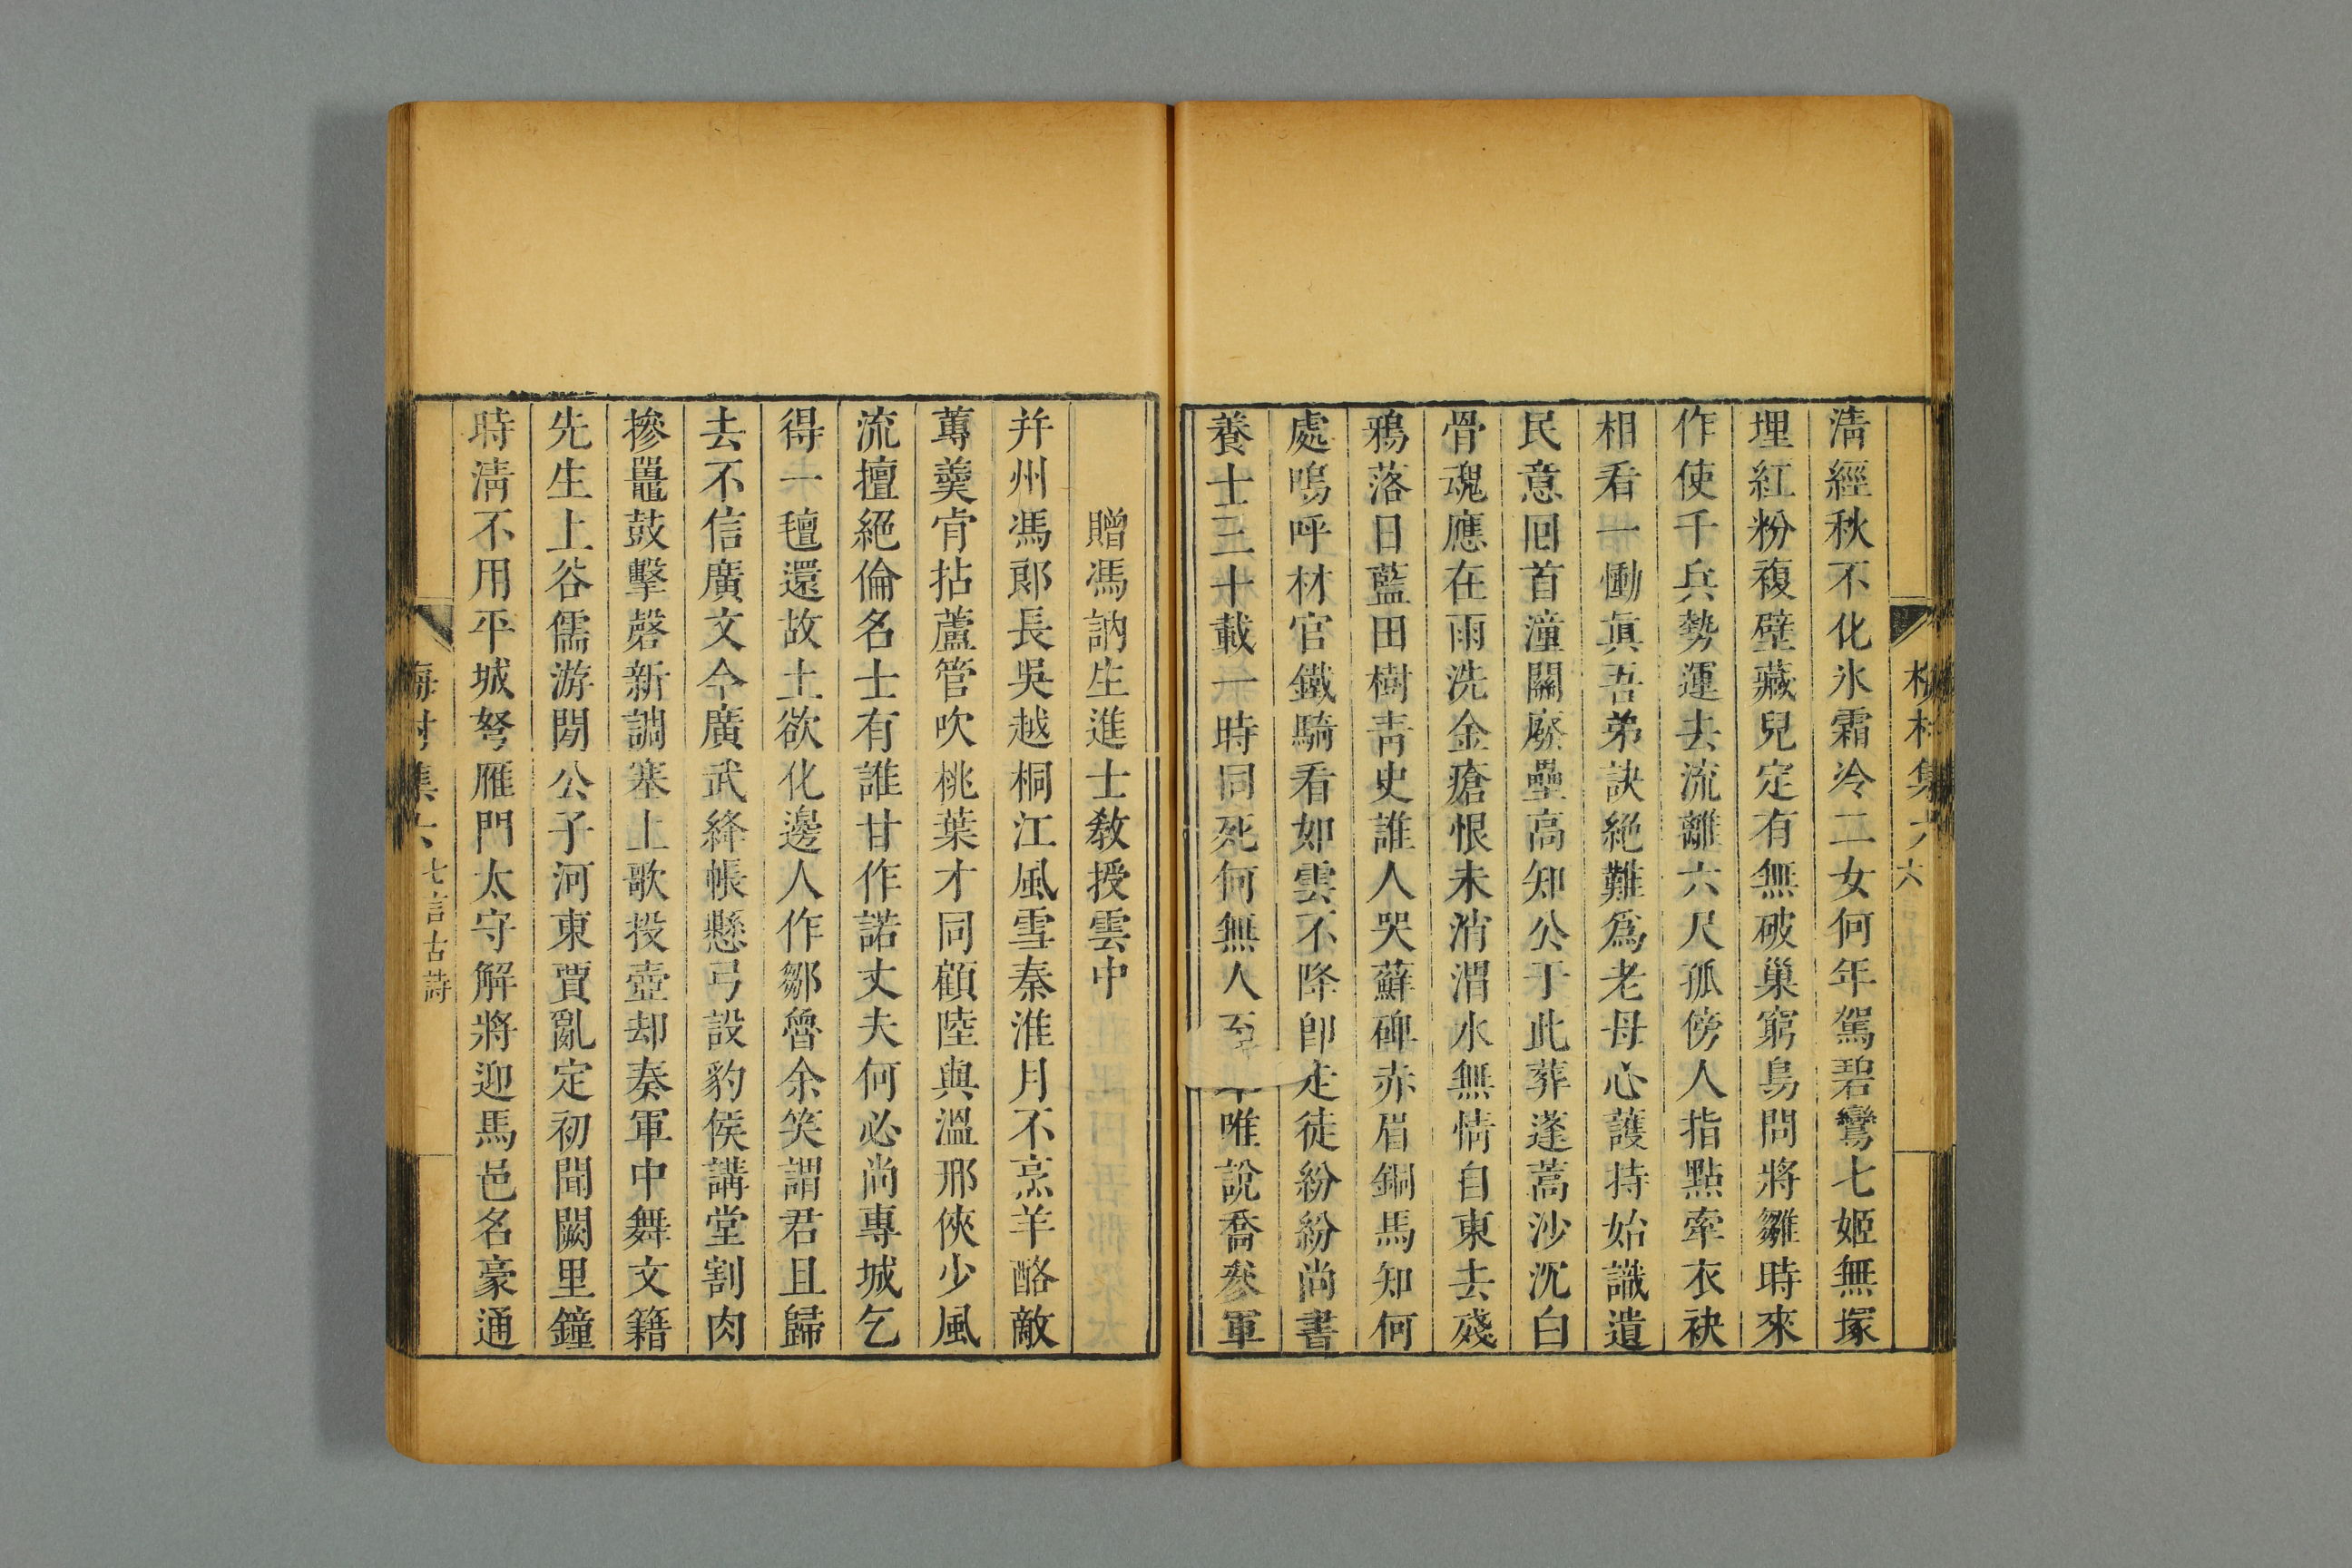 集
六
清經秋不化氷霜冷二女何年駕碧鸞七姬無塚
埋紅粉複壁藏兒定有無破巢窮鳥問將雛時來
作使千兵勢運去流離六尺孤傍人指點牽衣袂
相看一慟眞吾弟訣絕難爲老母心護持始識遺
民意囘首潼關廢壘高知公于此葬蓬蒿沙沉白
骨魂應在雨洗金瘡恨未消渭水無情自東去殘
鴉落日藍田樹靑史誰人哭蘚碑赤眉銅馬知何
處嗚呼材官鐵騎看如雲不降卽走徒紛紛尚書
養士三十載一時同死何無人至唯說喬叅軍
贈馮訥生進士敎授雲中
幷州馮郞長吳越桐江風雪秦淮月不烹羊酪敵
蓴羹肯拈蘆管吹桃葉才同顧陸與溫邢俠少風
流擅絕倫名士有誰甘作諾丈夫何必尚專城乞
得一氊還故土欲化邊人作鄒魯余笑謂君且歸
去不信廣文今廣武絳帳懸弓設豹侯講堂割肉
摻鼉鼓擊磬新調塞上歌投壺却奏軍中舞文籍
先生上谷儒游閒公子河東賈亂定初聞闕里鐘
時淸不用平城弩雁門太守解將迎馬邑名豪通
梅村集六
七言古詩